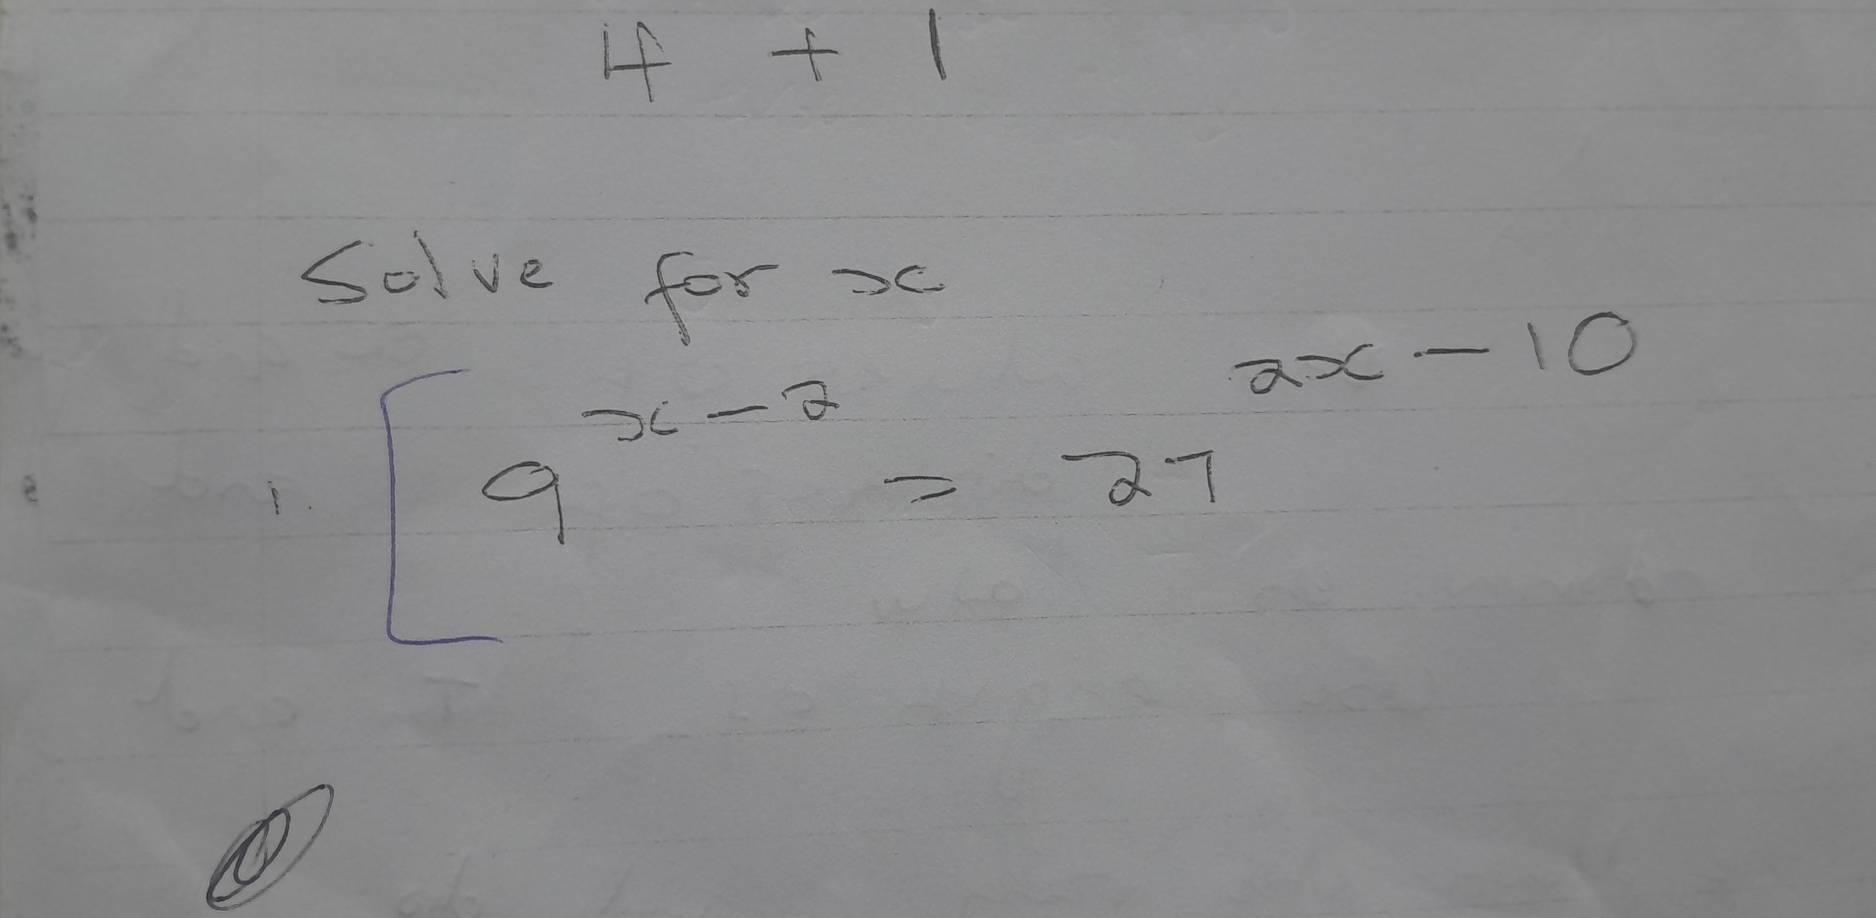 4 + 1
Solve for x
1. [ 9^{x-2} = 27^{2x-10}